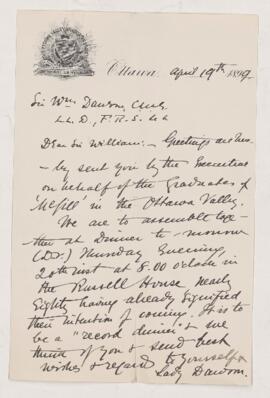 Ottawa, April 19th 1899.
Sir Wm Dawson, CMG,
LL.D., F.R.S. &c &c
Dear Sir William: - Greetings are here
- by sent you by the Executive
on behalf of the Graduates of
'McGill' in the Ottawa Valley.
We are to assemble toge
- ther at Dinner to-morrow
(D.V.) Thursday Evening,
20th inst at 8.00 o'clock in
the Russell House nearly
Eighty having already signified
their intention of coming. It is to
be a "record dinner" & we
think of you & send best
wishes & regards to yourself &
Lady Dawson.